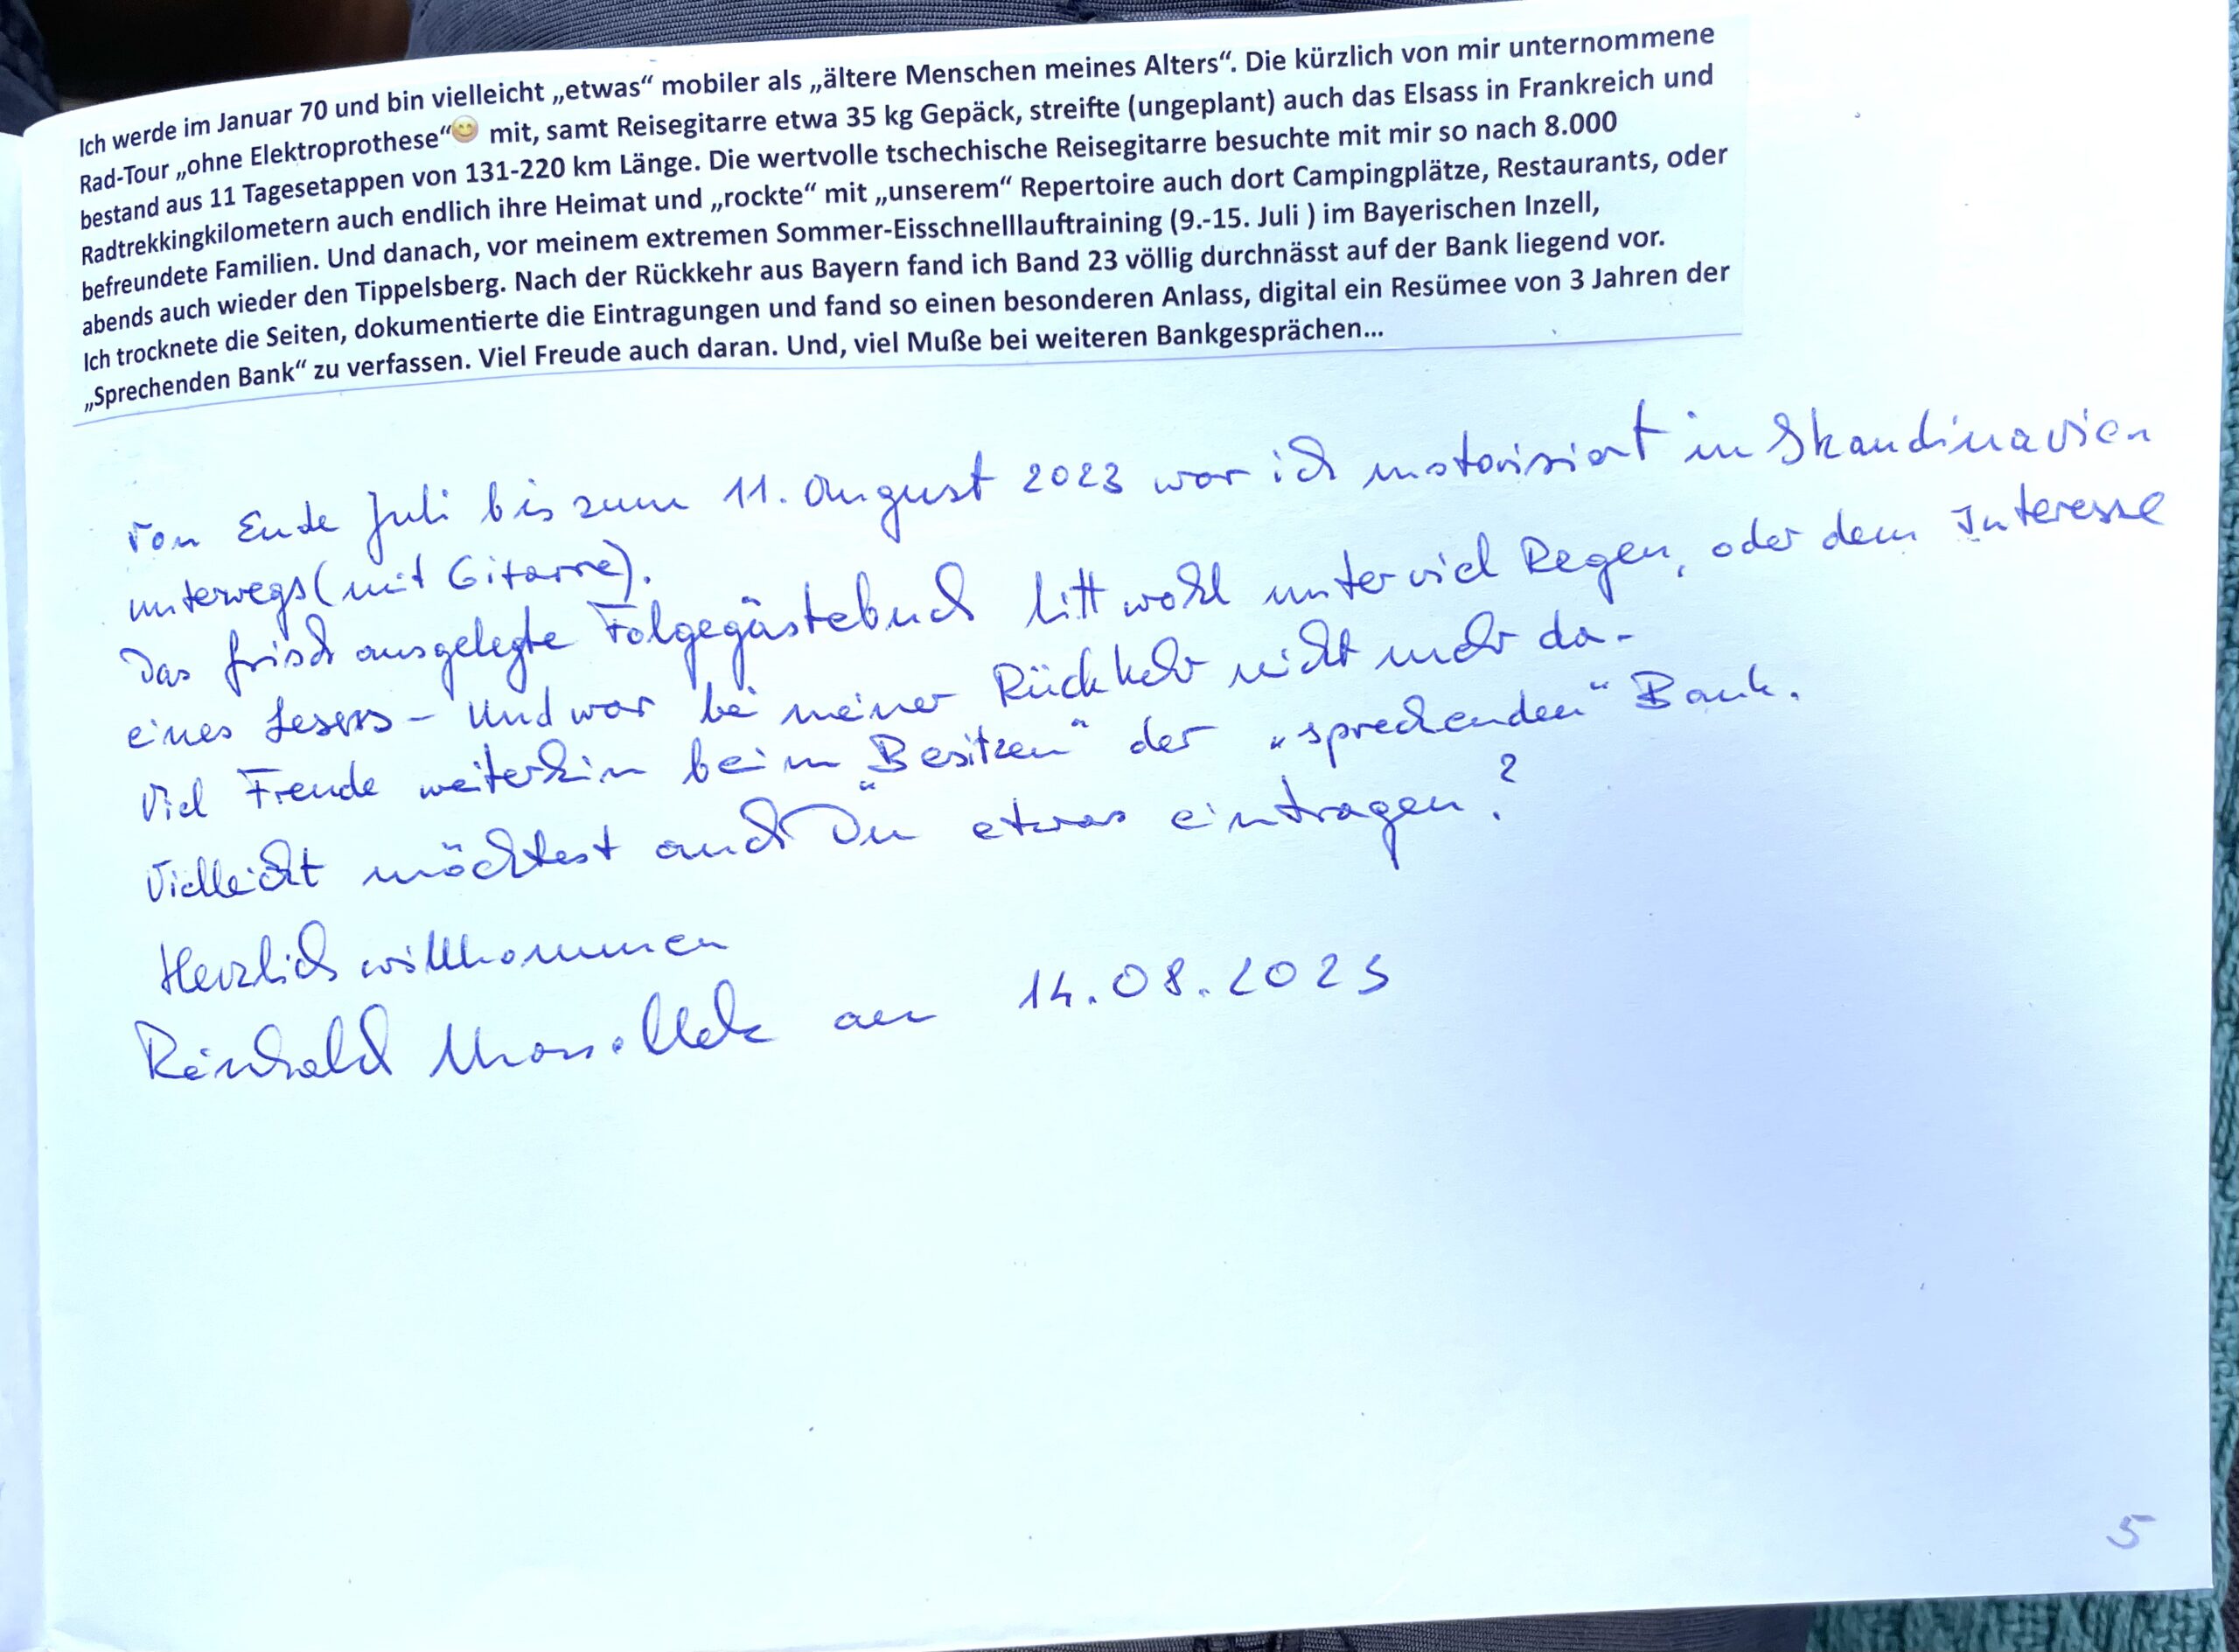 Ich werde im Januar 70 und bin vielleicht „etwas“ mobiler als „ältere Menschen meines Alters“. Die kürzlich von mir unternommene
Rad-Tour „ohne Elektroprothese“😊 mit, samt Reisegitarre etwa 35 kg Gepäck, streifte (ungeplant) auch das Elsass in Frankreich und
bestand aus 11 Tagesetappen von 131-220 km Länge. Die wertvolle tschechische Reisegitarre besuchte mit mir so nach 8.000
Radtrekkingkilometern auch endlich ihre Heimat und „rockte“ mit „unserem“ Repertoire auch dort Campingplätze, Restaurants, oder
befreundete Familien. Und danach, vor meinem extremen Sommer-Eisschnelllauftraining (9.-15. Juli ) im Bayerischen Inzell,
abends auch wieder den Tippelsberg. Nach der Rückkehr aus Bayern fand ich Band 23 völlig durchnässt auf der Bank liegend vor.
Ich trocknete die Seiten, dokumentierte die Eintragungen und fand so einen besonderen Anlass, digital ein Resümee von 3 Jahren der
„Sprechenden Bank“ zu verfassen. Viel Freude auch daran. Und, viel Muße bei weiteren Bankgesprächen...
Von Ende Juli bis zum 11. August 2023 war ich motorisiert in Skandinavien
unterwegs (mit Gitarre).
Das frisch ausgelegte Folgegästebuch litt wohl unter viel Regen, oder dem Interesse
eines Lesers – Und war bei meiner Rückkehr nicht mehr da.
Viel Freude weiterhin beim „Besitzen“ der „sprechenden“ Bank.
Vielleicht möchtest auch Du etwas eintragen?
Herzlich willkommen
Reinhold am 14.08.2023
5